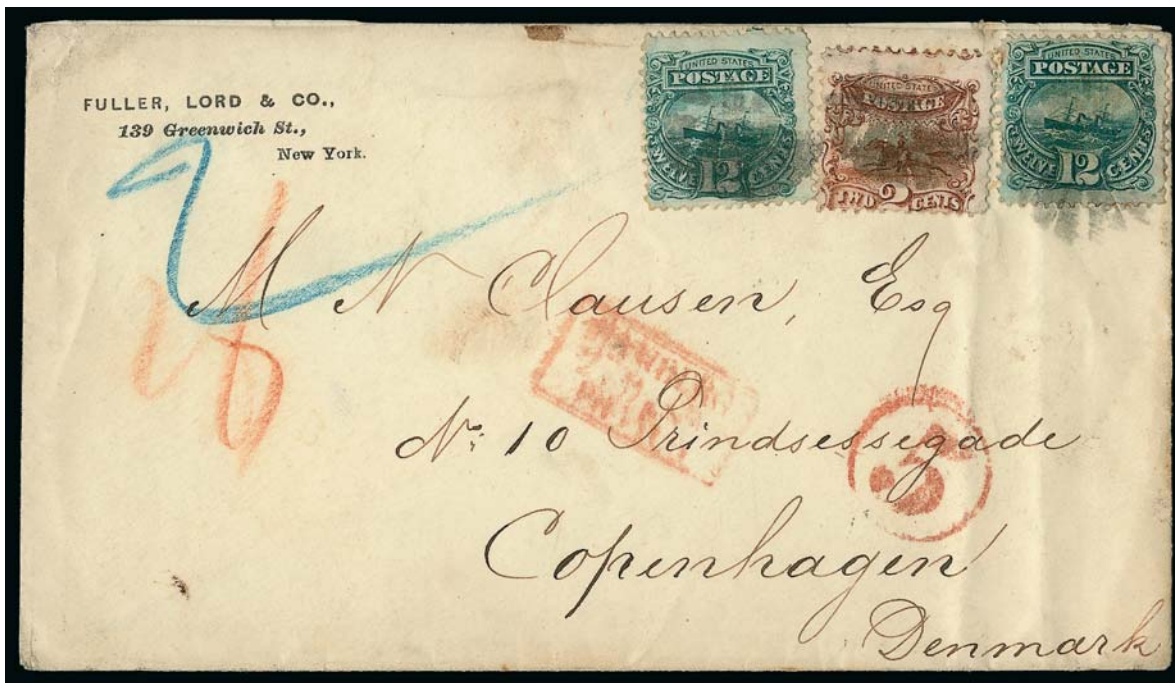 FULLER, LORD & CO.,
139 Greenwich St.,
New York.
UNITED STATES
POSTAGE
TWELVE 12 CENTS
UNITED STATES
POSTAGE
TWO 2 CENTS
UNITED STATES
POSTAGE
TWELVE 12 CENTS
M N Clausen, Esq
No: 10 Prindsessegade
Copenhagen
Denmark